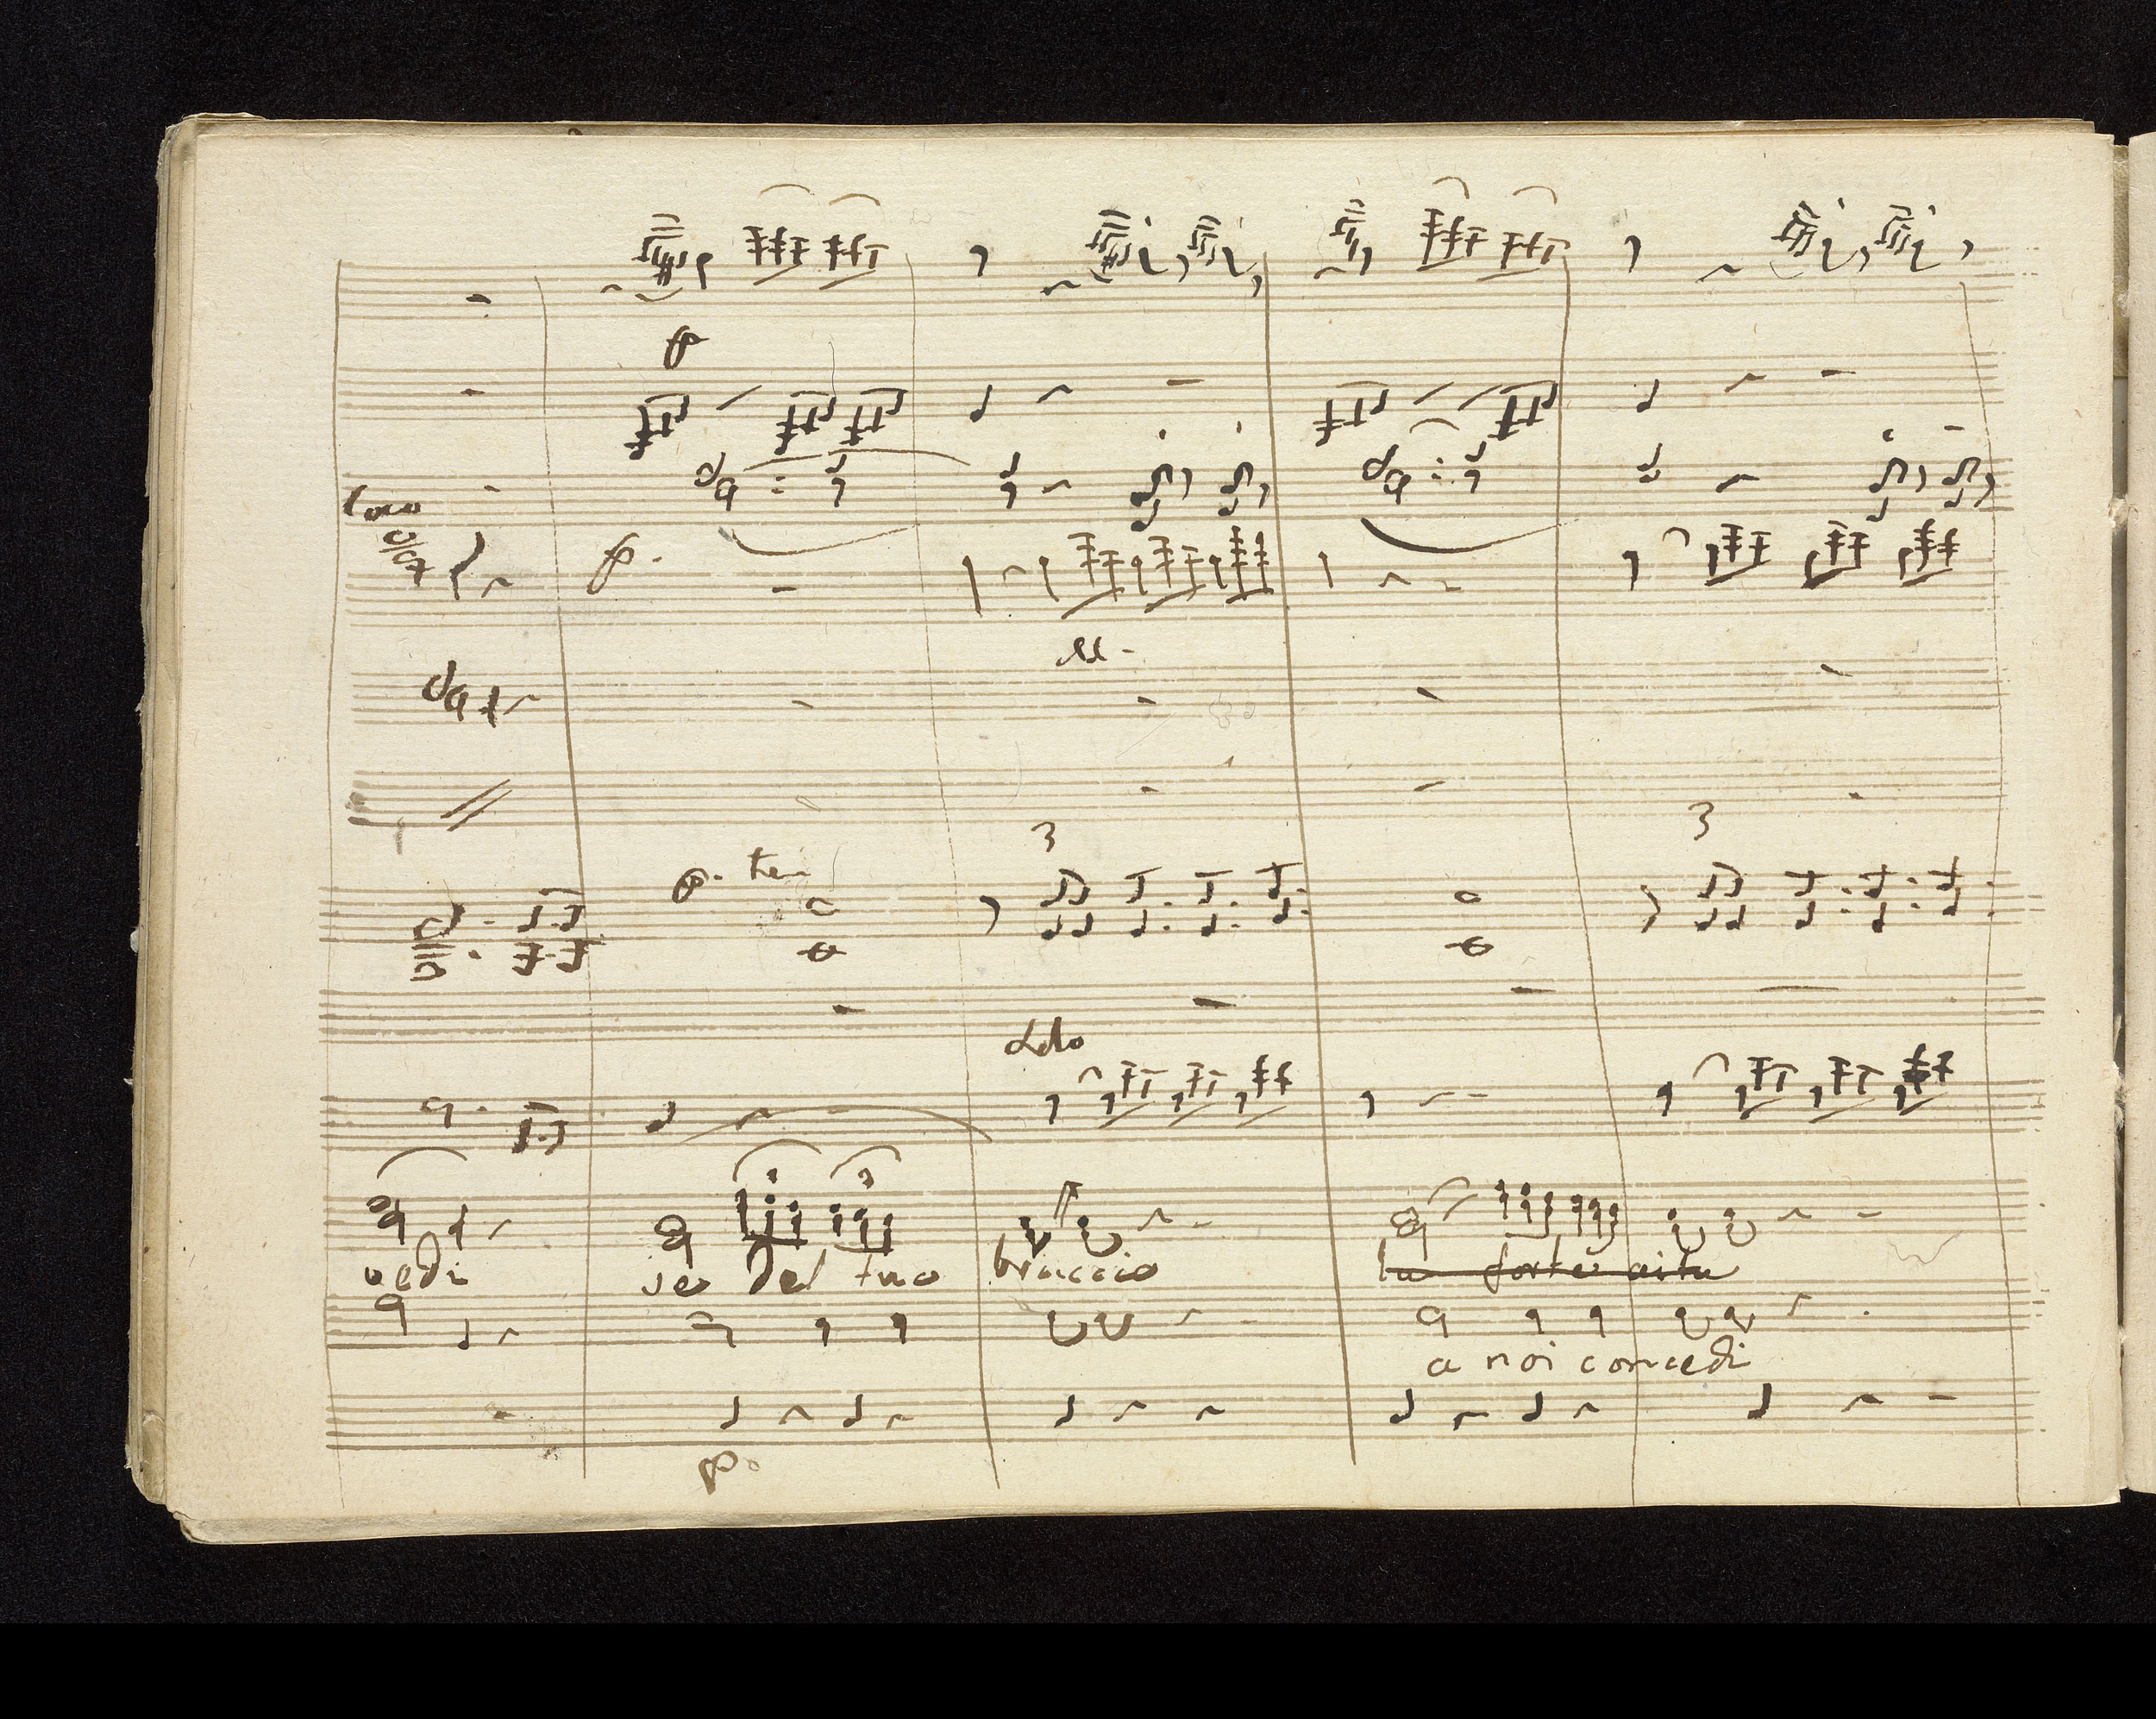 p
loco
p.
p. ten
3
3
Solo
3
vedi se del tuo braccio la forte aita
a noi concedi
p.